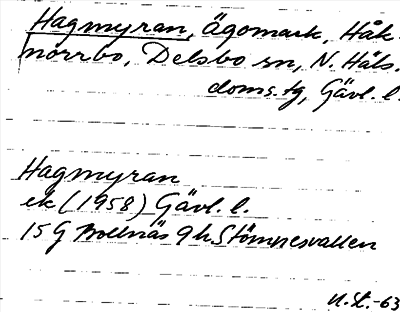 Hagmyran, Ägomark, Håk-
norrbo, Delsbo sn, N. Häls.
doms.tg, Gävl. l.
Hagmyran
ek (1958) Gävl. l.
15 G Bollnäs 9 h. Stömnesvallen
N.St.-63